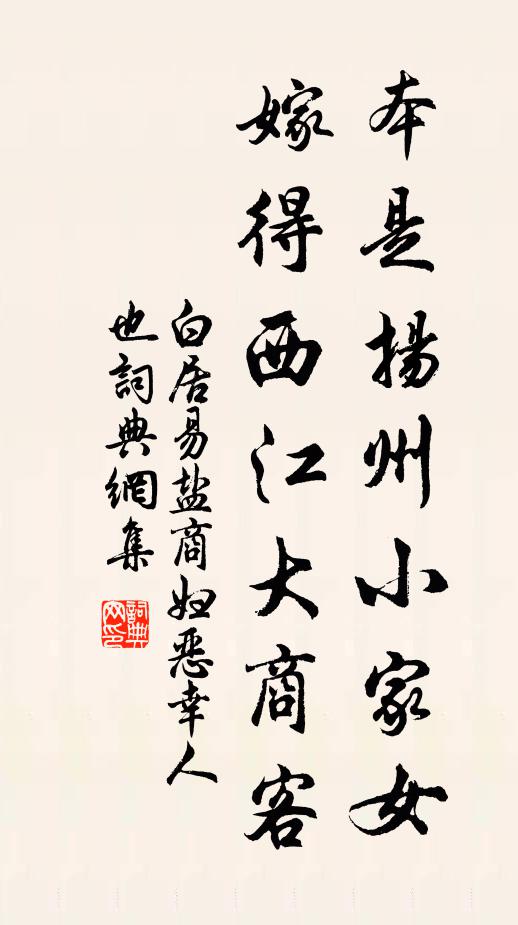 本是揚州小家女
嫁得西江大商客
白居易盐商妇恶幸人
也詞典網集
詞典网印